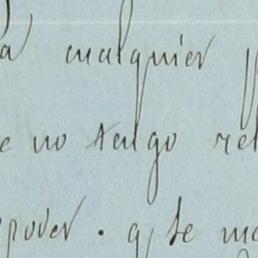 a cualquier
e no tengo rel
prover. q, se ma